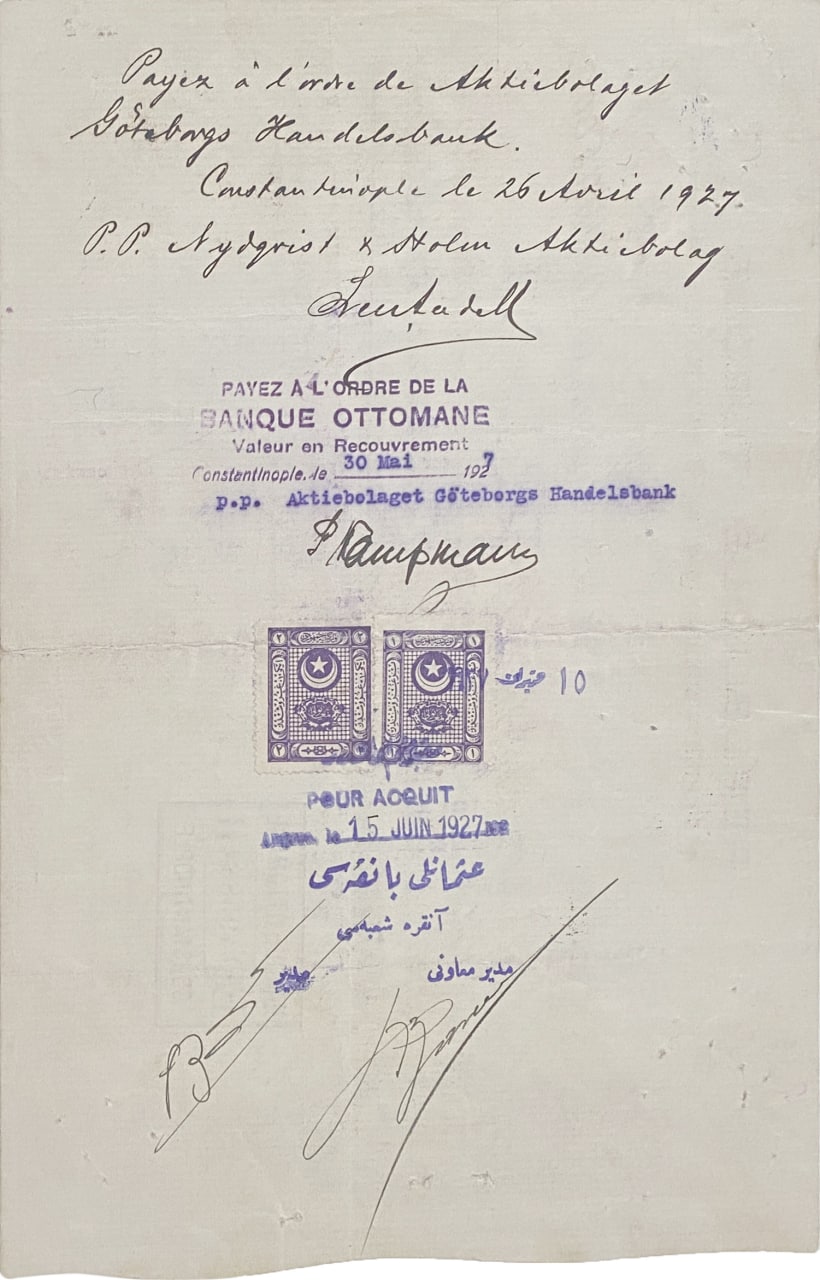 Payez à l'ordre de Aktiebolaget
Göteborgs Handelsbank.
Constantinople le 26 Avril 1927.
P.P. Nydqvist & Holm Aktiebolag
PAYEZ A L'ORDRE DE LA
BANQUE OTTOMANE
Valeur en Recouvrement
Constantinople, le 30 Mai 1927
p.p. Aktiebolaget Göteborgs Handelsbank
P Kampmann
٢ ٢
١ ١
١٥ حزيران ٩٢٧
٢ ٢
١ ١
POUR ACQUIT
Angora, le 15 JUIN 1927
عثمانلى بانقه‌سى
آنقره شعبه‌سى
مدير معاونى
مدير